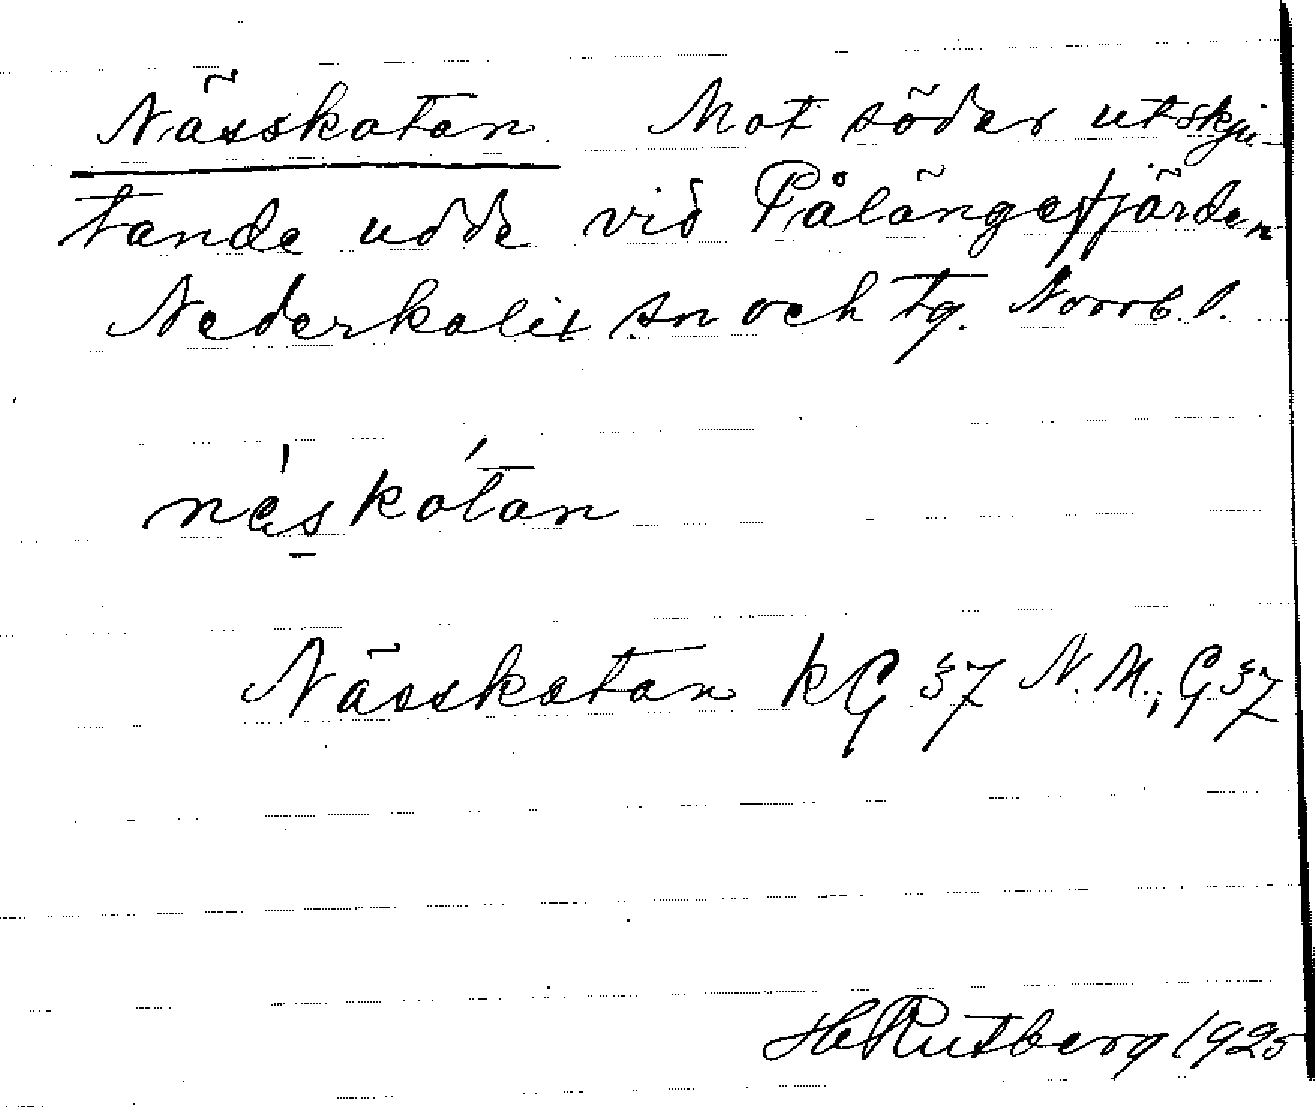 Nässkatan Mot söder utskju-
tande udde vid Pålängefjärden
Nederkalix sn och tg. Norrb. l.
näskàtan
Nässkatan kG 37 N.M., G 37
Rutberg 1925